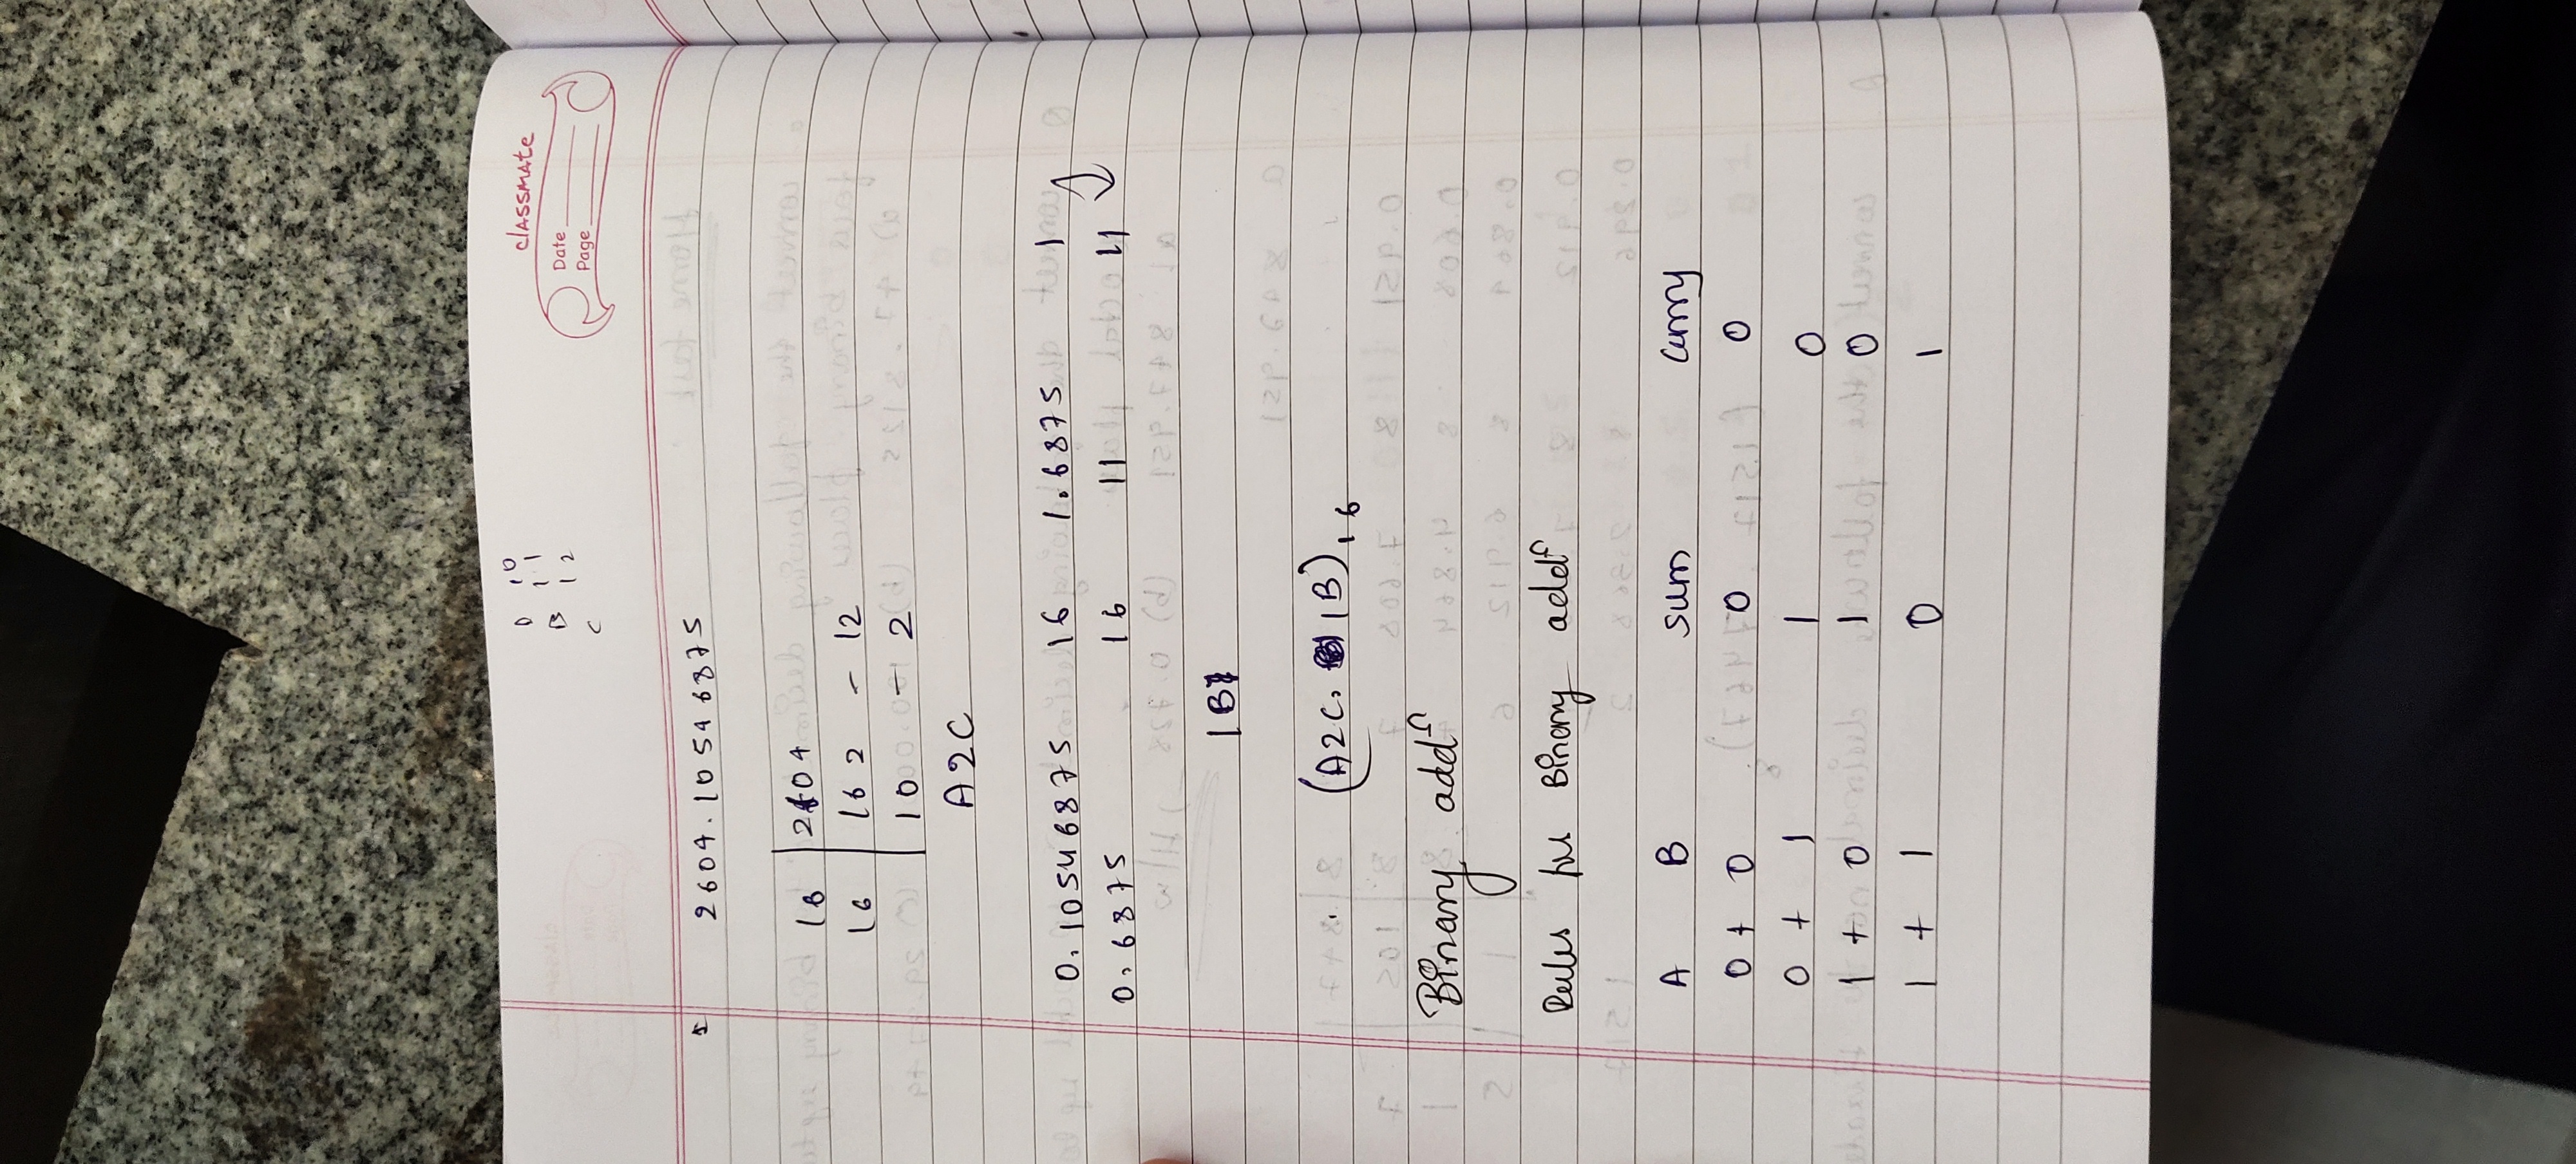 D 10
11
B 12
C
classmate
Date
Page
2604.10546875
16 2604
16 162 - 12
10 - 2
A2C
0.10546875 16 1.6875 1
0.6875 16 11 11
1B
(A2C. 1B)16
Binary addn
Rules for Binary addn
A B sum carry
0 + 0 0 0
0 + 1 1 0
1 + 0 1 0
1 + 1 0 1